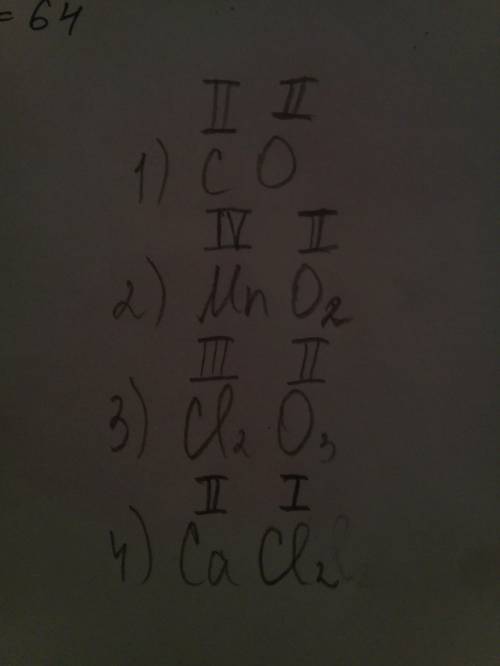 = 64
II II
1) C O
IV II
2) Mn O₂
III II
3) Cl₂ O₃
II I
4) Ca Cl₂